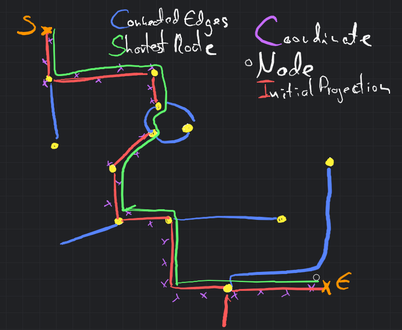 S
Connected Edges
Shortest Node
Coordinate
Node
Initial Projection
E